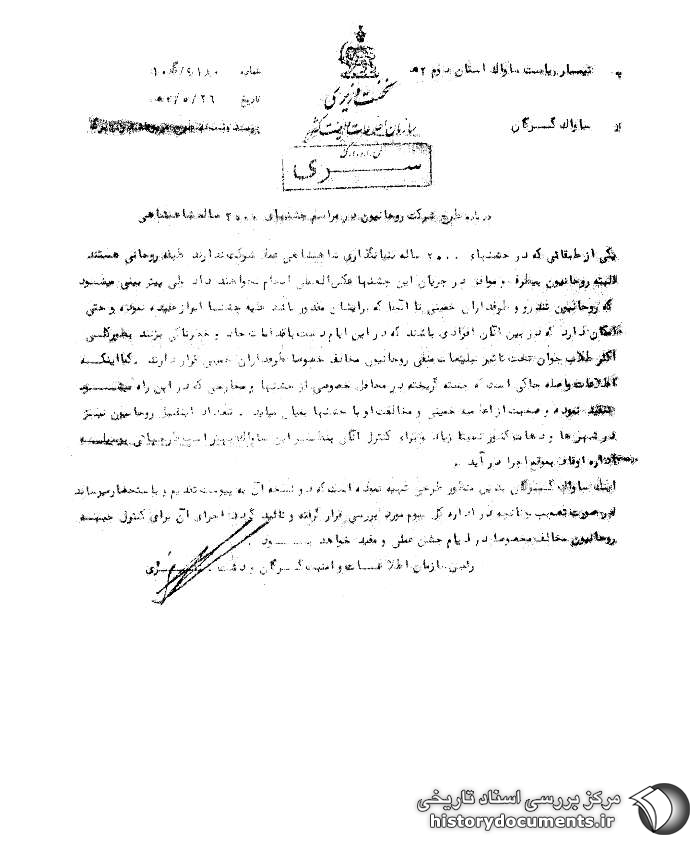 به تیمسار ریاست ساواک استان دوم ۲ه شماره ۱۰گ/۹۱۸۰
نخست وزیری
تاریخ ۲۶/۵/
سازمان اطلاعات و امنیت کشور
از ساواک گرگان پیوست
سری
درباره طرح شرکت روحانیون در مراسم جشنهای ۲۰۰۰ ساله شاهنشاهی
یکی از طبقاتی که در جشنهای ۲۰۰۰ ساله بنیانگذاری شاهنشاهی عملا شرکت ندارند طبقه روحانی هستند
البته روحانیون بیطرف و موافق در جریان این جشنها عکس‌العملی انجام نخواهند داد ولی پیش بینی میشود
که روحانیون تندرو و طرفداران خمینی تا آنجا که برایشان مقدور باشد علیه جشنها ابراز عقیده نموده و حتی
امکان دارد که در بین آنان افرادی باشند که در این ایام دست باقدامات حاد و خطرناکی بزنند بطورکلی
اکثر طلاب جوان تحت تاثیر تبلیغات منفی روحانیون مخالف خصوصا طرفداران خمینی قرار دارند . کمااینکه
اطلاعات واصله حاکی است که جسته گریخته در محافل خصوصی از جشنها و مخارجی که در این راه میشود
تنقید نموده و صحبت از اعلامیه خمینی و مخالفت او با جشنها بمیان میاید . تعداد اینقبیل روحانیون نیز
در شهرها و دهات کشور نسبتا زیاد و برای کنترل آنان بنظر این ساواک بهتر است طرحهائی بوسیله
اداره اوقاف بموقع اجرا درآید .
اینک ساواک گرگان بدین منظور طرحی تهیه نموده است که دو نسخه آن به پیوست تقدیم و باستحضار میرساند
در صورت تصویب چنانچه در اداره کل سوم مورد بررسی قرار گرفته و تائید گردد اجرای آن برای کنترل
روحانیون مخالف مخصوصا در ایام جشن عملی و مفید خواهد بود .
رئیس سازمان اطلاعات و امنیت گرگان و دشت
مرکز بررسی اسناد تاریخی
historydocuments.ir